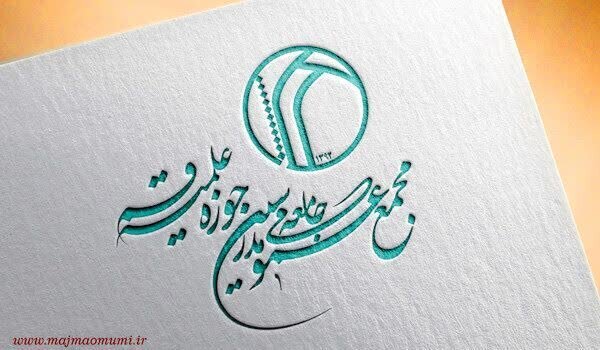 ۱۳۹۲
مجمع عمومی جامعه مدرسین حوزه علمیه قم
www.majmaomumi.ir